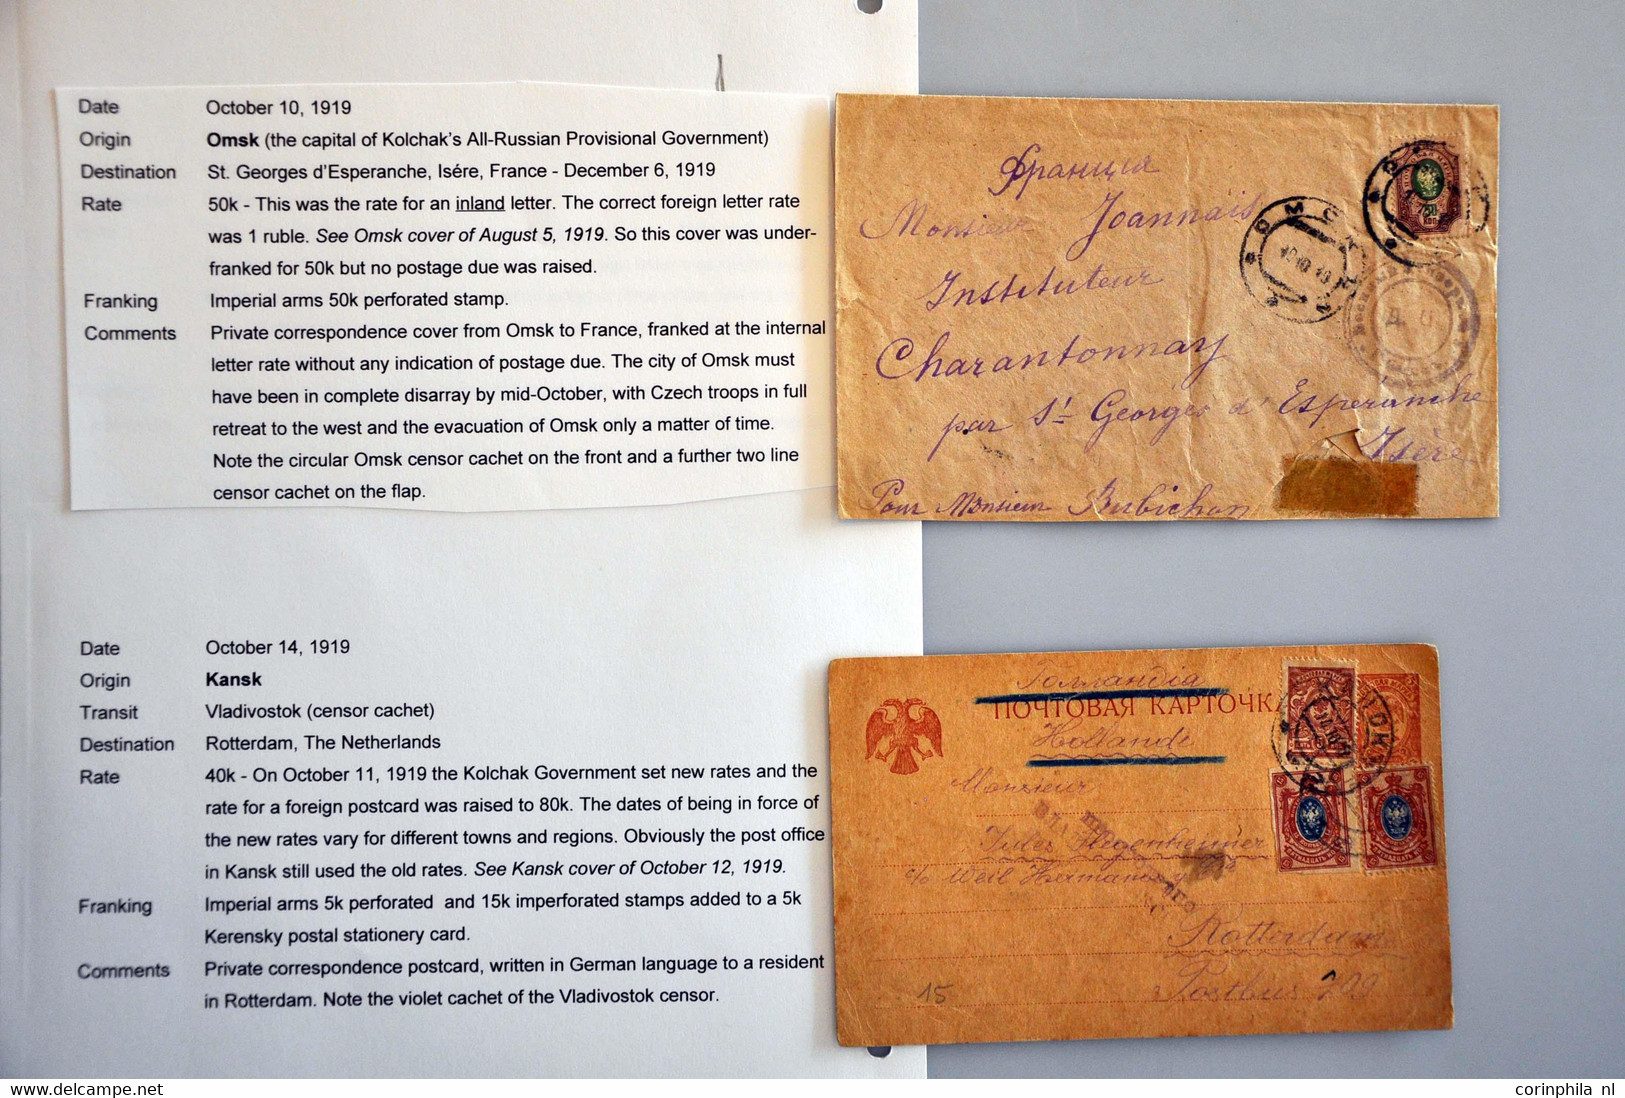 Date October 10, 1919
Origin Omsk (the capital of Kolchak's All-Russian Provisional Government)
Destination St. Georges d'Esperanche, Isére, France - December 6, 1919
Rate 50k - This was the rate for an inland letter. The correct foreign letter rate
was 1 ruble. See Omsk cover of August 5, 1919. So this cover was under-
franked for 50k but no postage due was raised.
Franking Imperial arms 50k perforated stamp.
Comments Private correspondence cover from Omsk to France, franked at the internal
letter rate without any indication of postage due. The city of Omsk must
have been in complete disarray by mid-October, with Czech troops in full
retreat to the west and the evacuation of Omsk only a matter of time.
Note the circular Omsk censor cachet on the front and a further two line
censor cachet on the flap.
Франция
Monsieur Joannais
Instituteur
Charantonnay
par St Georges d'Esperanche
Isère
Pour Monsieur Bubichon
ОМСК
10 10 19
50
КОП
Date October 14, 1919
Origin Kansk
Transit Vladivostok (censor cachet)
Destination Rotterdam, The Netherlands
Rate 40k - On October 11, 1919 the Kolchak Government set new rates and the
rate for a foreign postcard was raised to 80k. The dates of being in force of
the new rates vary for different towns and regions. Obviously the post office
in Kansk still used the old rates. See Kansk cover of October 12, 1919.
Franking Imperial arms 5k perforated and 15k imperforated stamps added to a 5k
Kerensky postal stationery card.
Comments Private correspondence postcard, written in German language to a resident
in Rotterdam. Note the violet cachet of the Vladivostok censor.
Голландія
ПОЧТОВАЯ КАРТОЧКА
Hollande
Monsieur
Jules Hegenheimer
c/o Weil Hermanos y
Rotterdam
Postbus 299
15
delcampe.net
corinphila nl